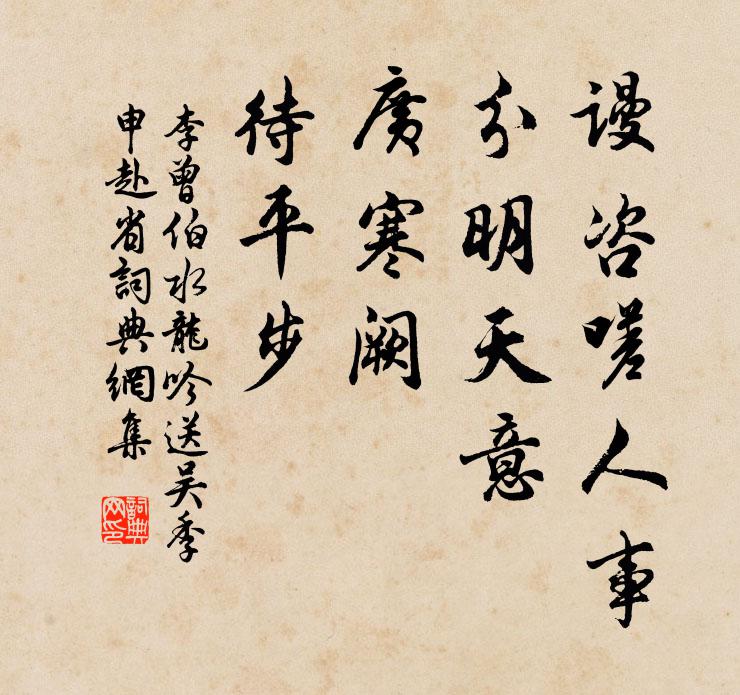 謾咨嗟人事
分明天意
廣寒闕
待平步
李曾伯水龍吟送吳季
申赴省詞典網集
詞典
网印